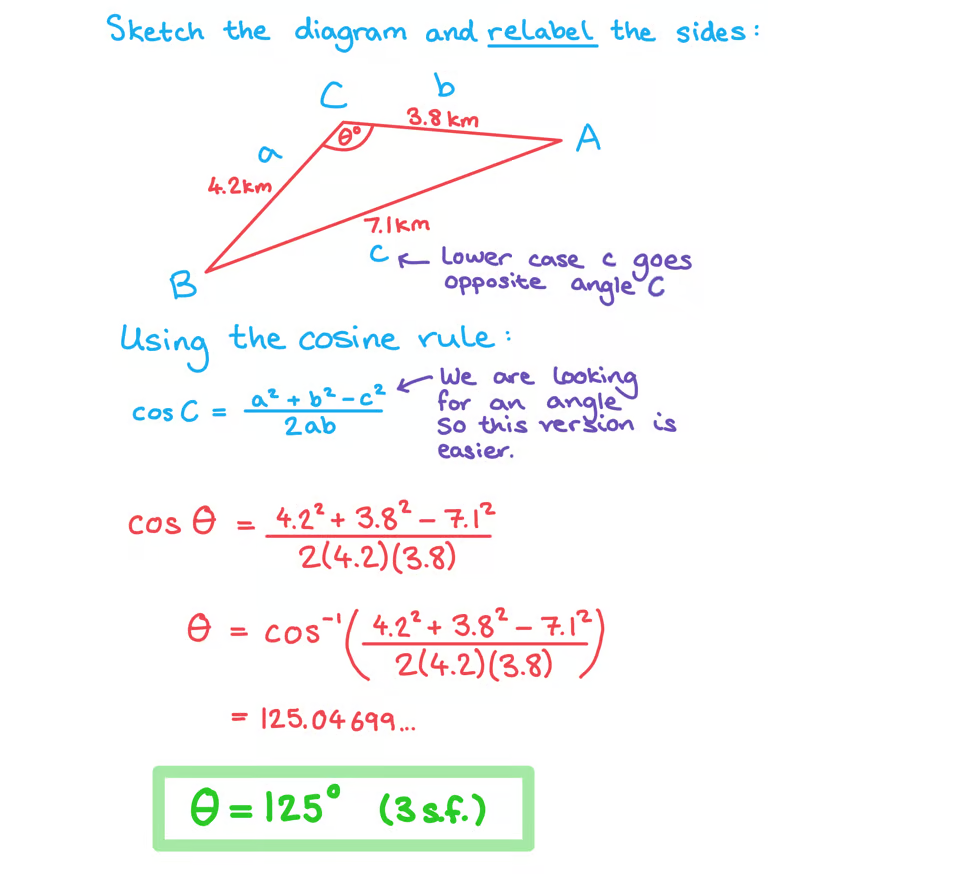 Sketch the diagram and relabel the sides:
C
b
3.8km
θ°
A
a
4.2km
7.1km
B
c ← Lower case c goes
opposite angle C
Using the cosine rule:
cos C = (a² + b² - c²) / 2ab
← We are looking
for an angle
so this version is
easier.
cos θ = (4.2² + 3.8² - 7.1²) / 2(4.2)(3.8)
θ = cos⁻¹((4.2² + 3.8² - 7.1²) / 2(4.2)(3.8))
= 125.04699...
θ = 125° (3 s.f.)